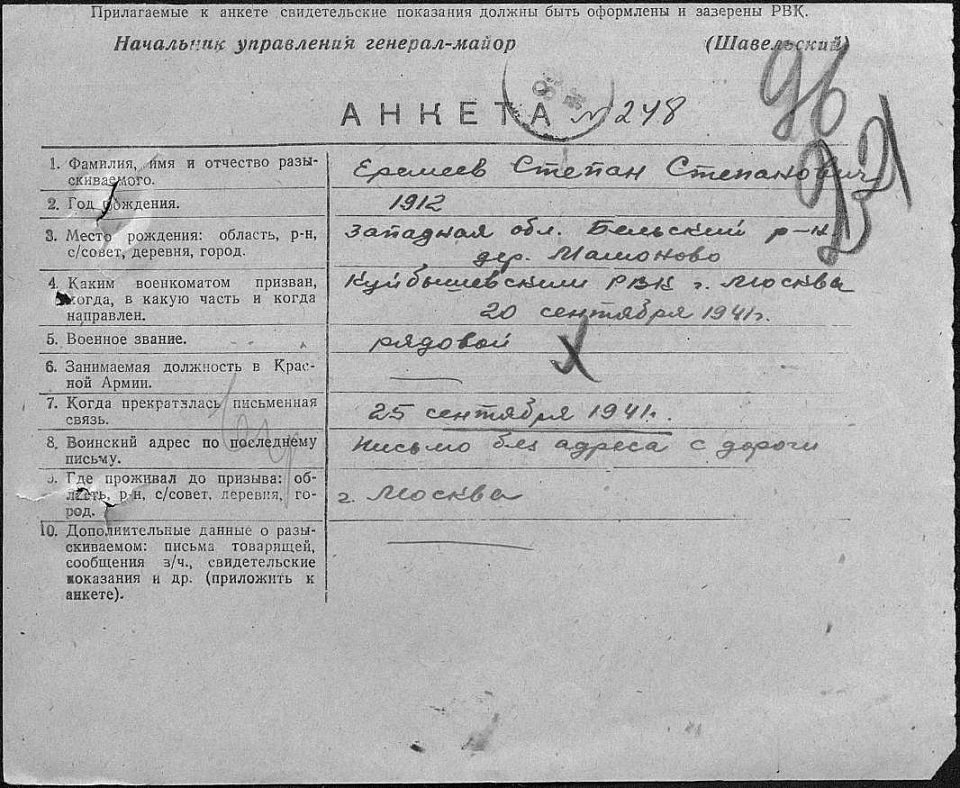 Прилагаемые к анкете свидетельские показания должны быть оформлены и зазерены РВК.
Начальник управления генерал-майор (Шавельский)
96
АНКЕТА № 248
1. Фамилия, имя и отчество разы-
скиваемого.
Еремеев Степан Степанович
2. Год рождения.
1912
3. Место рождения: область, р-н,
с/совет, деревня, город.
Западная обл. Бельский р-н.
дер. Мамоново
4. Каким военкоматом призван,
когда, в какую часть и когда
направлен.
Куйбышевским РВК г. Москва
20 сентября 1941г.
5. Военное звание.
рядовой
6. Занимаемая должность в Крас-
ной Армии.
7. Когда прекратилась письменная
связь.
25 сентября 1941г.
8. Воинский адрес по последнему
письму.
Письмо без адреса с дороги
9. Где проживал до призыва: об-
ласть, р-н, с/совет, деревня, го-
род.
г. Москва
10. Дополнительные данные о разы-
скиваемом: письма товарищей,
сообщения в/ч., свидетельские
показания и др. (приложить к
анкете).